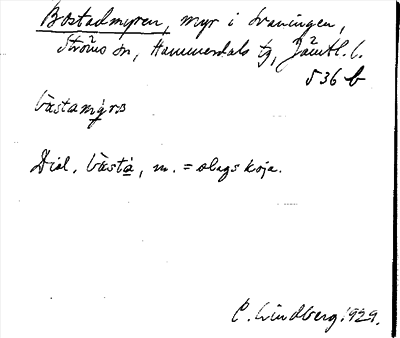 Bostadmyren, myr i Svaningen,
Ströms sn, Hammerdals tg, Jämtl. l.
536 b
Dial. båsta, m. = slags koja.
C. Lindberg. 1929.